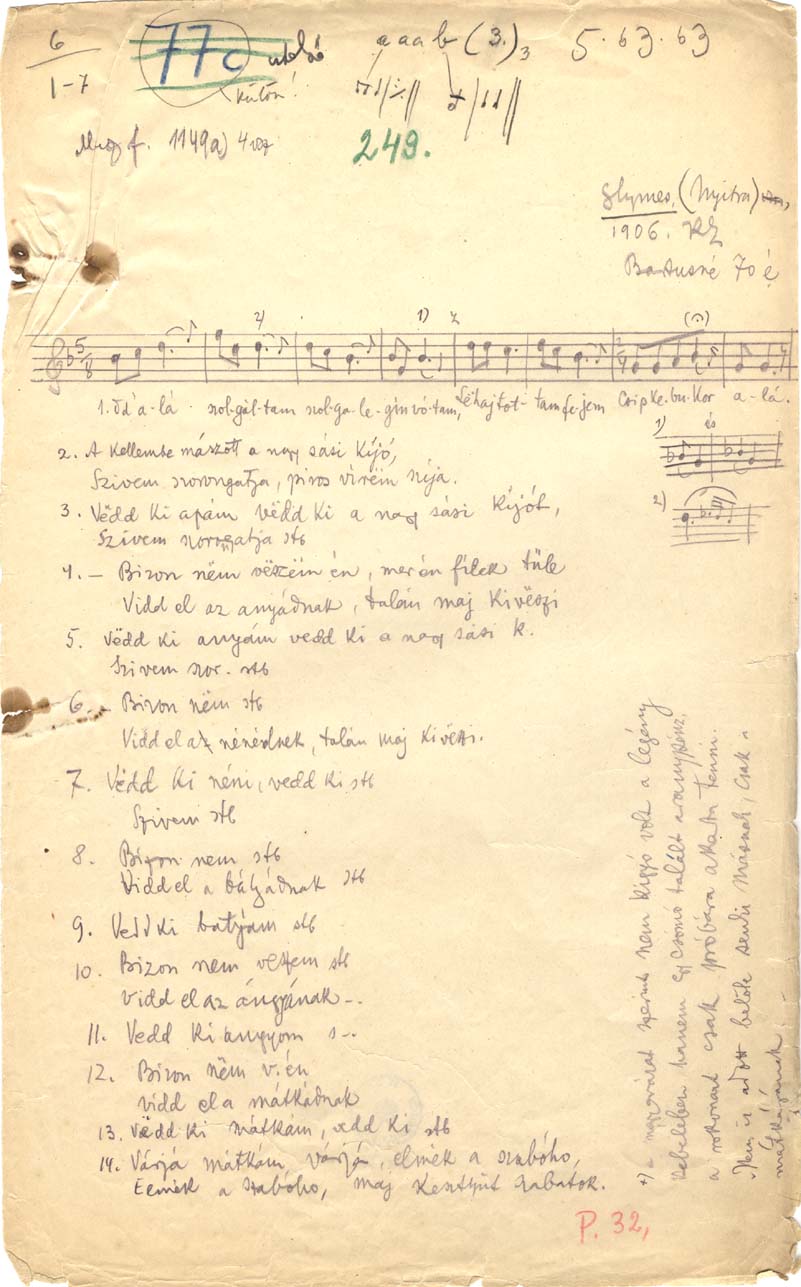 6
1-7
77c utolsó
külön!
a a a b (3.)3
5 · 63 · 63
f. 1149a)
249.
Ghymes, (Nyitra)
1906. KZ
Bartusné 70 é
5
8
2)
1)
Z
2
4
1. alá szol-gál-tam szol-ga-le-gín vó-tam, Lehajtot-tam fe-jem Csipke-bu-kor a-lá.
1) és
2)
2. A kellembe mászott a nagy sási kíjó,
Szivem szorongatja, piros vírëim szíja.
3. Vëdd ki apám vëdd ki a nagy sási kíjót,
Szivem szorongatja stb
4. – Bizon nëm vëszëm én, mer én fílek tüle
Vidd el az anyádnak, talán maj kivëszi
5. Vëdd ki anyám vedd ki a nagy sási k.
Szivem szor. stb
6. – Bizon nëm stb
Vidd el az nénédnek, talán maj kivëszi.
7. Vëdd ki néni, vedd ki stb
Szivem stb
8. Bizon nem stb
Vidd el a bátyádnak stb
9. Vedd ki bátyám stb
10. Bizon nem veszem stb
Vidd el az ángyának –.
11. Vedd ki angyom s–.
12. Bizon nëm v. én
vidd el a mátkádnak
13. Vëdd ki mátkám, vedd ki stb
14. Várjá mátkám, várjá, elmék a szabóho,
Elmék a szabóho, maj kesztyüt szabatok.
+) a magyarázat szerint nem kígyó volt a legény
kebelében hanem egy csomó talált aranypénz,
a rokonait csak próbára akarta tenni.
Nem is adott belőle senki másnak, csak a
mátkájának –
P. 32,